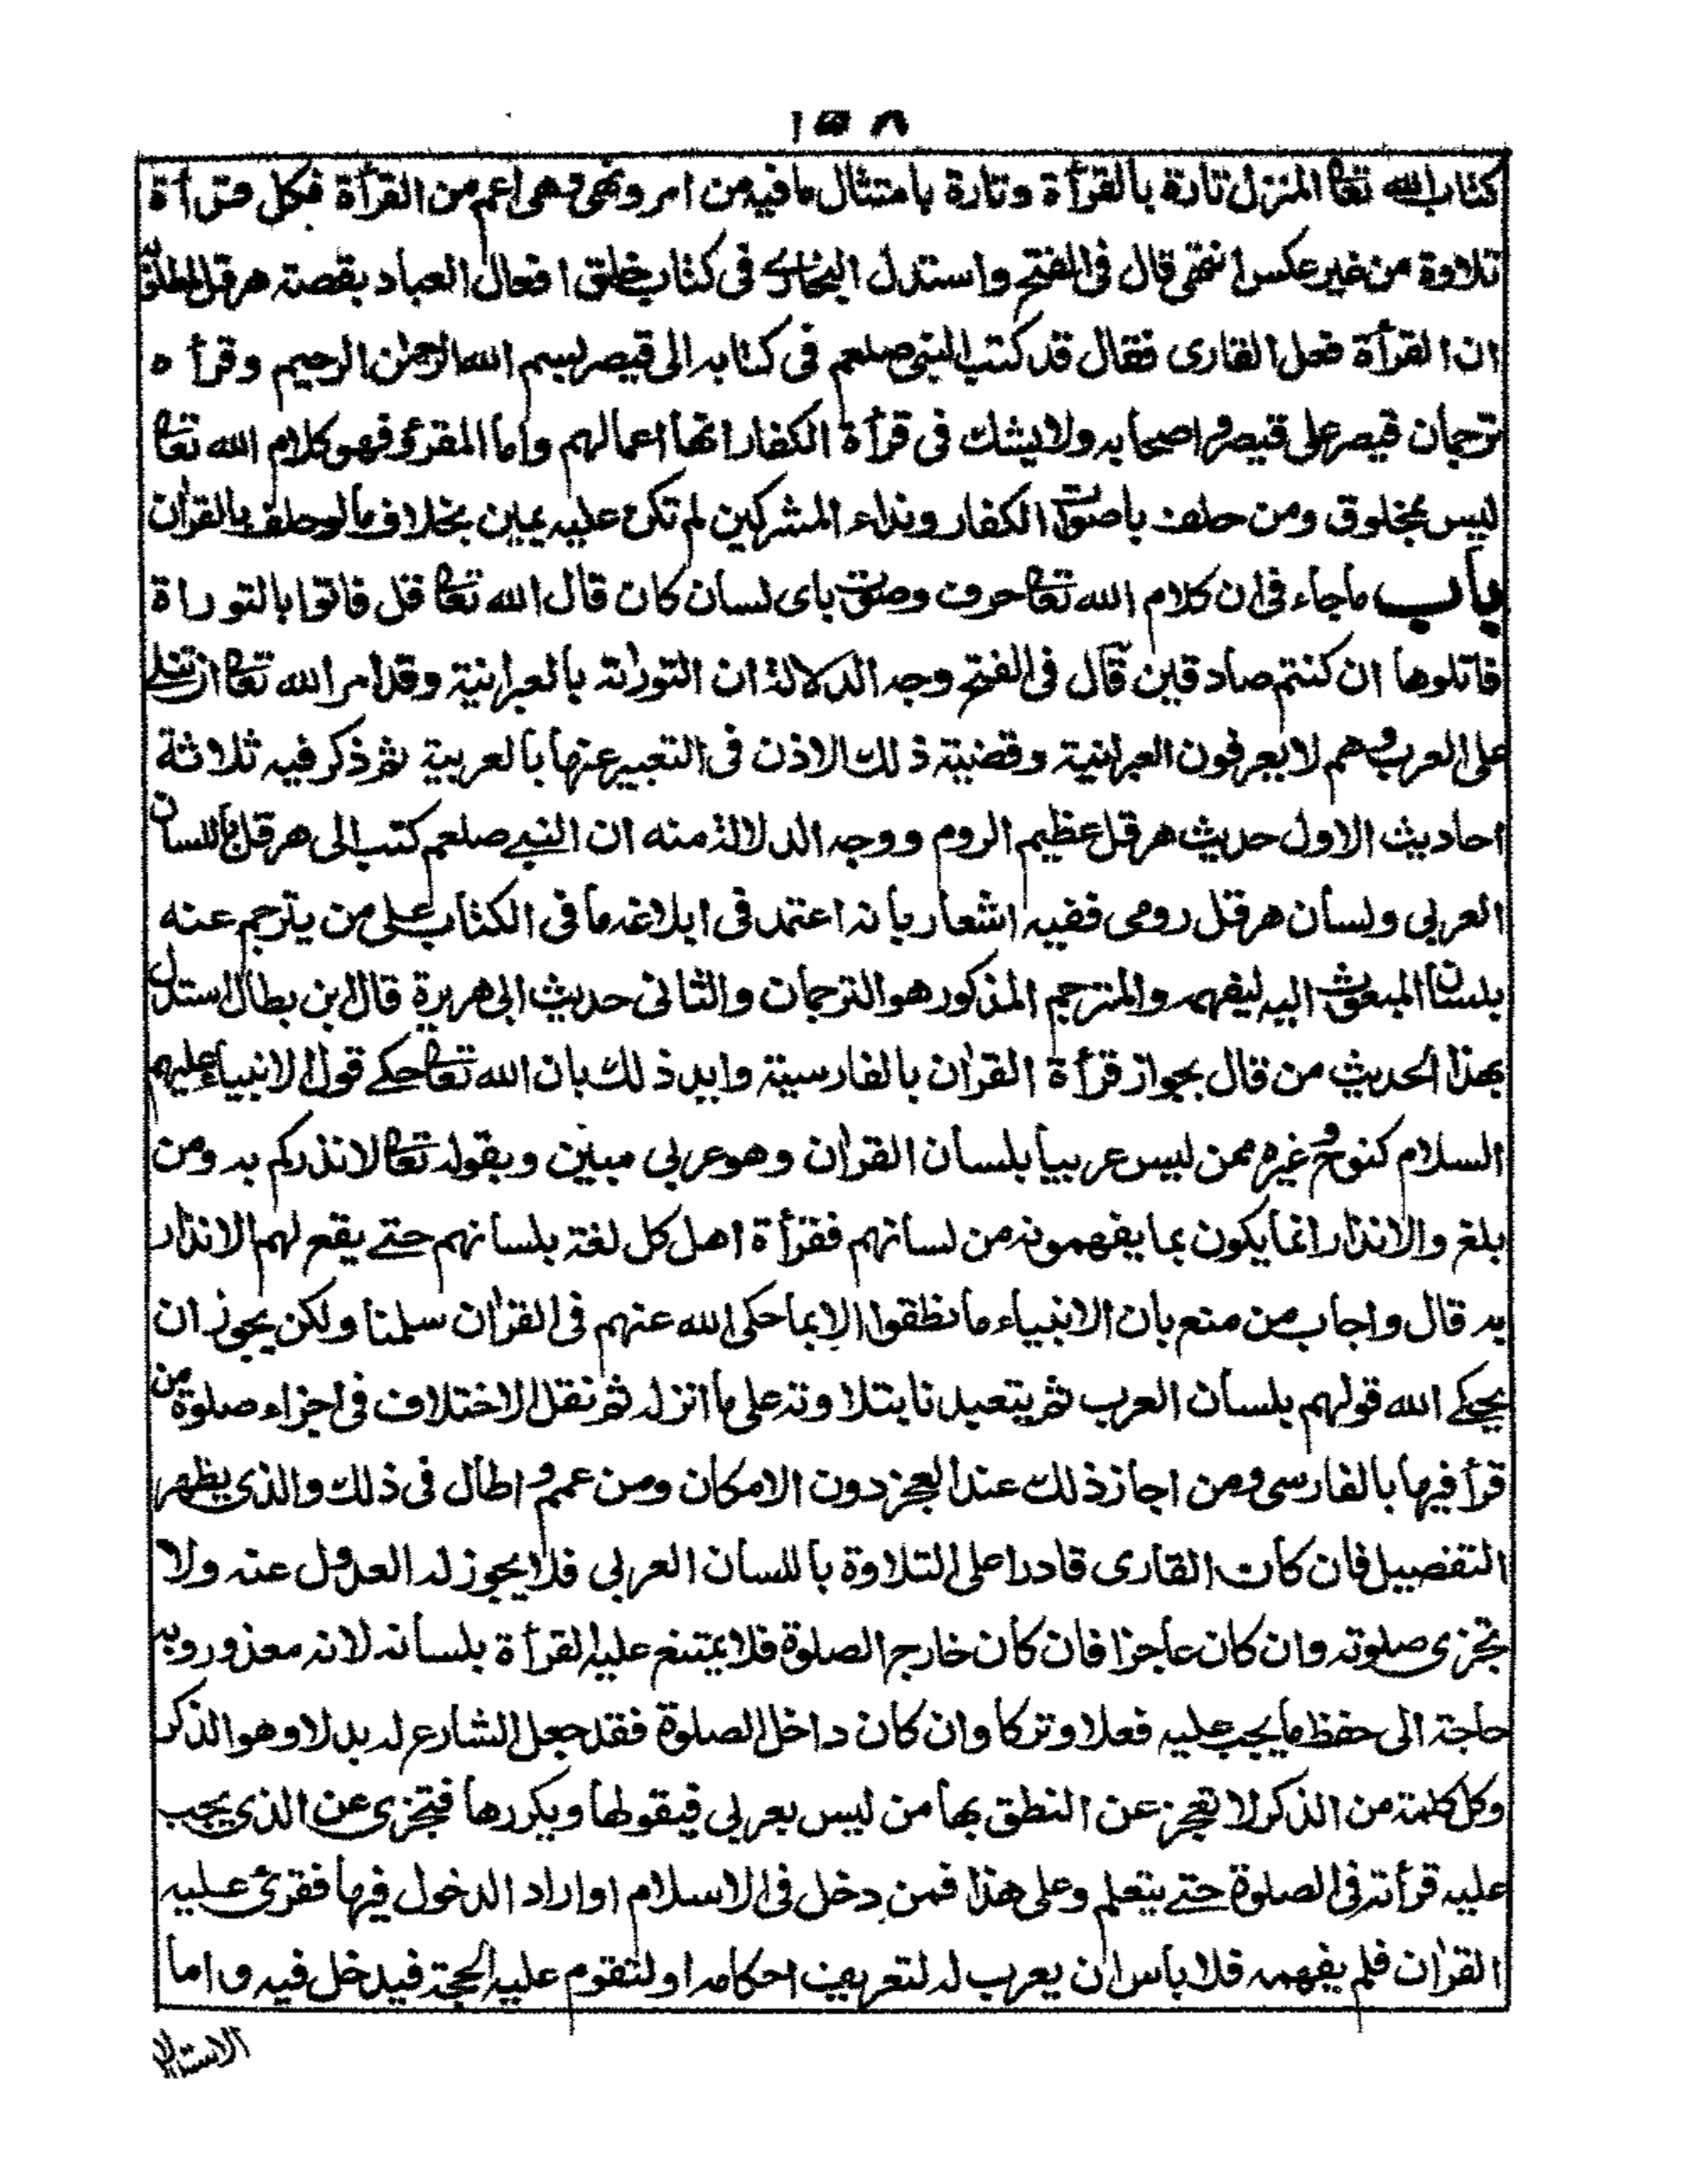 ١٥٨
كتاب الله تعا المنزل تارة بالقرأة وتارة بامتثال ما فيه من امر ونهى وهى اعم من القرأة فكل قرأة
تلاوة من غير عكس انتهى قال فى الفتح واستدل البخارى فى كتاب خلق افعال العباد بقصة هرقل
ان القرأة فعل القارى فقال قد كتب النبى صلعم فى كتابه الى قيصر بسم الله الرحمن الرحيم وقرأه
ترجمان قيصر على قيصر واصحابه ولا يشك فى قرأة الكفار انها اعمالهم واما المقرؤ فهو كلام الله تعا
ليس بمخلوق ومن حلف باصوات الكفار ونداء المشركين لم تكن عليه يمين بخلاف ما لو حلف بالقرآن
باب ماجاء فى ان كلام الله تعا حرف وصوت باى لسان كان قال الله تعا قل فاتوا بالتوراة
فاتلوها ان كنتم صادقين قال فى الفتح وجه الدلالة ان التوراة بالعبرانية وقد امر الله تعا ان تتلى
على العرب وهم لا يعرفون العبرانية وقضية ذلك الاذن فى التعبير عنها بالعربية ثم ذكر فيه ثلاثة
احاديث الاول حديث هرقل عظيم الروم ووجه الدلالة منه ان النبے صلعم كتب الى هرقل باللسان
العربى ولسان هرقل رومى ففيه اشعار بانه اعتمد فى ابلاغه ما فى الكتاب على من يترجم عنه
بلسان المبعوث اليه ليفهمه والمترجم المذكور هو الترجمان والثانى حديث ابى هريرة قال ابن بطال استدل
بهذا الحديث من قال بجواز قرأة القرآن بالفارسية وايد ذلك بان الله تعا حكے قول الانبياء عليهم
السلام كنوح وغيره ممن ليس عربيا بلسان القرآن وهو عربى مبين وبقوله تعا لانذركم به ومن
بلغ والانذار انما يكون بما يفهمونه من لسانهم فقرأة اهل كل لغة بلسانهم حتے يقع لهم الانذار
به قال واجاب من منع بان الانبياء ما نطقوا الا بما حكى الله عنهم فى القرآن سلمنا ولكن يجوز ان
يحكے الله قولهم بلسان العرب ثم يتعبدنا بتلاوته على ما انزله ثم نقل الاختلاف فى اجزاء صلوة من
قرأ فيها بالفارسى ومن اجاز ذلك عند العجز دون الامكان ومن عمم واطال فى ذلك والذى يظهر
التفصيل فان كان القارى قادرا على التلاوة باللسان العربى فلا يجوز له العدول عنه ولا
تجزى صلوته وان كان عاجزا فان كان خارج الصلوة فلا يمتنع عليه القرأة بلسانه لانه معذور وبه
حاجة الى حفظ ما يجب عليه فعلا وتركا وان كان داخل الصلوة فقد جعل الشارع له بدلا وهو الذكر
وكل كلمة من الذكر لا تعجز عن النطق بها من ليس بعربى فيقولها ويكررها فتجزى عن الذى يجب
عليه قرأته فى الصلوة حتے يتعلم وعلى هذا فمن دخل فى الاسلام او اراد الدخول فيها فقرئ عليه
القرآن فلم يفهمه فلا باس ان يعرب له لتعريف احكامه او لتقوم عليه الحجة فيدخل فيه واما
الاستدلال